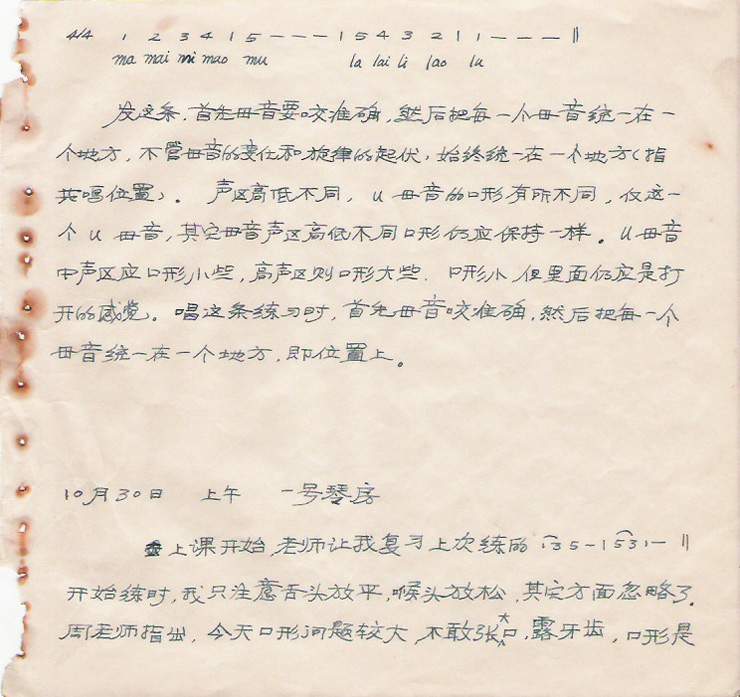 4/4 1 2 3 4 | 5 — — — | 5 4 3 2 | 1 — — — ‖
ma mai mi mao mu la lai li lao lu
发这条,首先母音要咬准确,然后把每一个母音统一在一
个地方,不管母音的变化和旋律的起伏,始终统一在一个地方(指
共鸣位置)。声区高低不同,u母音的口形有所不同,仅这一
个u母音,其它母音声区高低不同口形仍应保持一样。u母音
中声区应口形小些,高声区则口形大些.口形小但里面仍应是打
开的感觉。唱这条练习时,首先母音咬准确,然后把每一个
母音统一在一个地方,即位置上。
10月30日 上午 一号琴房
上课开始,老师让我复习上次练的 1 3 5 — | 5 3 1 — ‖
开始练时,我只注意舌头放平,喉头放松,其它方面忽略了.
周老师指出,今天口形问题较大,不敢张大口,露牙齿,口形是